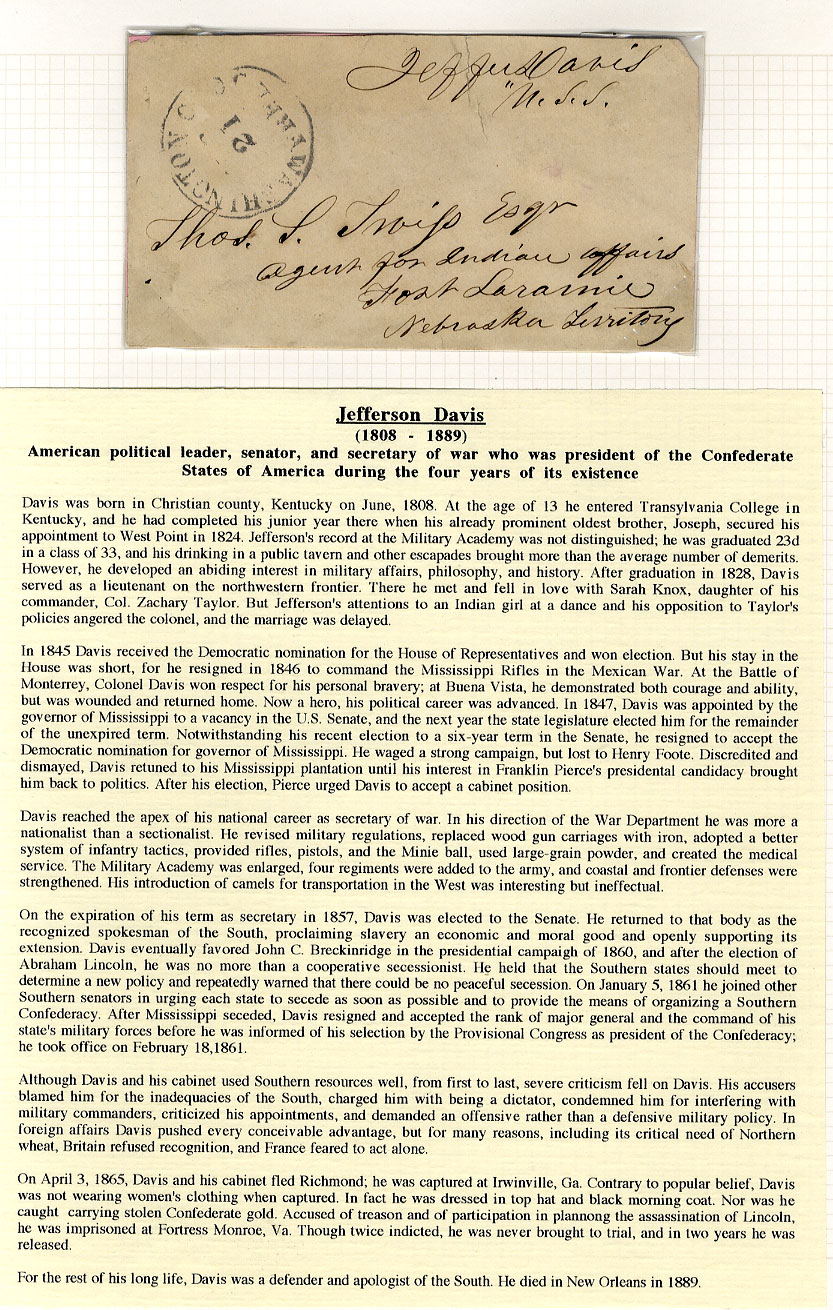 Jeffer Davis
U.S.S.
WASHINGTON
FREE
21
Thos. S. Twiss Esqr
Agent for Indian affairs
Fort Laramie
Nebraska Territory
Jefferson Davis
(1808 - 1889)
American political leader, senator, and secretary of war who was president of the Confederate
States of America during the four years of its existence
Davis was born in Christian county, Kentucky on June, 1808. At the age of 13 he entered Transylvania College in
Kentucky, and he had completed his junior year there when his already prominent oldest brother, Joseph, secured his
appointment to West Point in 1824. Jefferson's record at the Military Academy was not distinguished; he was graduated 23d
in a class of 33, and his drinking in a public tavern and other escapades brought more than the average number of demerits.
However, he developed an abiding interest in military affairs, philosophy, and history. After graduation in 1828, Davis
served as a lieutenant on the northwestern frontier. There he met and fell in love with Sarah Knox, daughter of his
commander, Col. Zachary Taylor. But Jefferson's attentions to an Indian girl at a dance and his opposition to Taylor's
policies angered the colonel, and the marriage was delayed.
In 1845 Davis received the Democratic nomination for the House of Representatives and won election. But his stay in the
House was short, for he resigned in 1846 to command the Mississippi Rifles in the Mexican War. At the Battle of
Monterrey, Colonel Davis won respect for his personal bravery; at Buena Vista, he demonstrated both courage and ability,
but was wounded and returned home. Now a hero, his political career was advanced. In 1847, Davis was appointed by the
governor of Mississippi to a vacancy in the U.S. Senate, and the next year the state legislature elected him for the remainder
of the unexpired term. Notwithstanding his recent election to a six-year term in the Senate, he resigned to accept the
Democratic nomination for governor of Mississippi. He waged a strong campaign, but lost to Henry Foote. Discredited and
dismayed, Davis retuned to his Mississippi plantation until his interest in Franklin Pierce's presidental candidacy brought
him back to politics. After his election, Pierce urged Davis to accept a cabinet position.
Davis reached the apex of his national career as secretary of war. In his direction of the War Department he was more a
nationalist than a sectionalist. He revised military regulations, replaced wood gun carriages with iron, adopted a better
system of infantry tactics, provided rifles, pistols, and the Minie ball, used large-grain powder, and created the medical
service. The Military Academy was enlarged, four regiments were added to the army, and coastal and frontier defenses were
strengthened. His introduction of camels for transportation in the West was interesting but ineffectual.
On the expiration of his term as secretary in 1857, Davis was elected to the Senate. He returned to that body as the
recognized spokesman of the South, proclaiming slavery an economic and moral good and openly supporting its
extension. Davis eventually favored John C. Breckinridge in the presidential campaigh of 1860, and after the election of
Abraham Lincoln, he was no more than a cooperative secessionist. He held that the Southern states should meet to
determine a new policy and repeatedly warned that there could be no peaceful secession. On January 5, 1861 he joined other
Southern senators in urging each state to secede as soon as possible and to provide the means of organizing a Southern
Confederacy. After Mississippi seceded, Davis resigned and accepted the rank of major general and the command of his
state's military forces before he was informed of his selection by the Provisional Congress as president of the Confederacy;
he took office on February 18,1861.
Although Davis and his cabinet used Southern resources well, from first to last, severe criticism fell on Davis. His accusers
blamed him for the inadequacies of the South, charged him with being a dictator, condemned him for interfering with
military commanders, criticized his appointments, and demanded an offensive rather than a defensive military policy. In
foreign affairs Davis pushed every conceivable advantage, but for many reasons, including its critical need of Northern
wheat, Britain refused recognition, and France feared to act alone.
On April 3, 1865, Davis and his cabinet fled Richmond; he was captured at Irwinville, Ga. Contrary to popular belief, Davis
was not wearing women's clothing when captured. In fact he was dressed in top hat and black morning coat. Nor was he
caught carrying stolen Confederate gold. Accused of treason and of participation in plannong the assassination of Lincoln,
he was imprisoned at Fortress Monroe, Va. Though twice indicted, he was never brought to trial, and in two years he was
released.
For the rest of his long life, Davis was a defender and apologist of the South. He died in New Orleans in 1889.